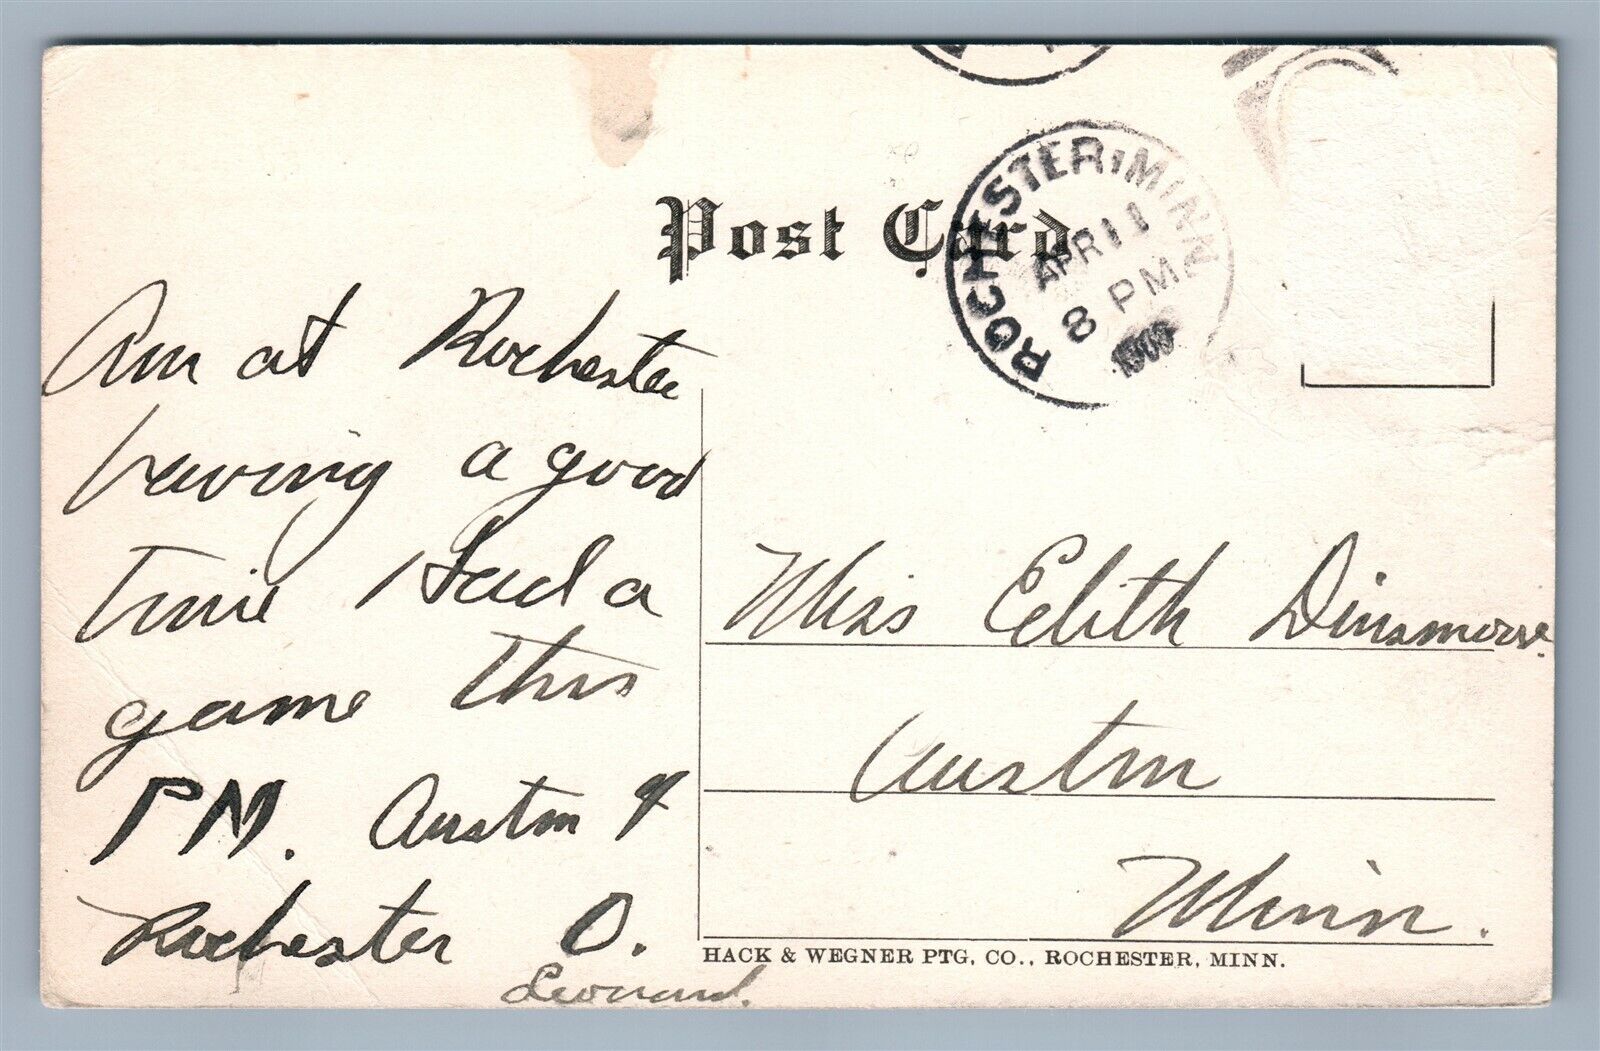 Post Card
ROCHESTER, MINN.
APR 11
8 PM
1909
Am at Rochester
having a good
time / Had a
game this
P M. Austin 9
Rochester 0.
Leonard.
Miss Edith Dinsmoore.
Austin
Minn.
HACK & WEGNER PTG. CO., ROCHESTER, MINN.